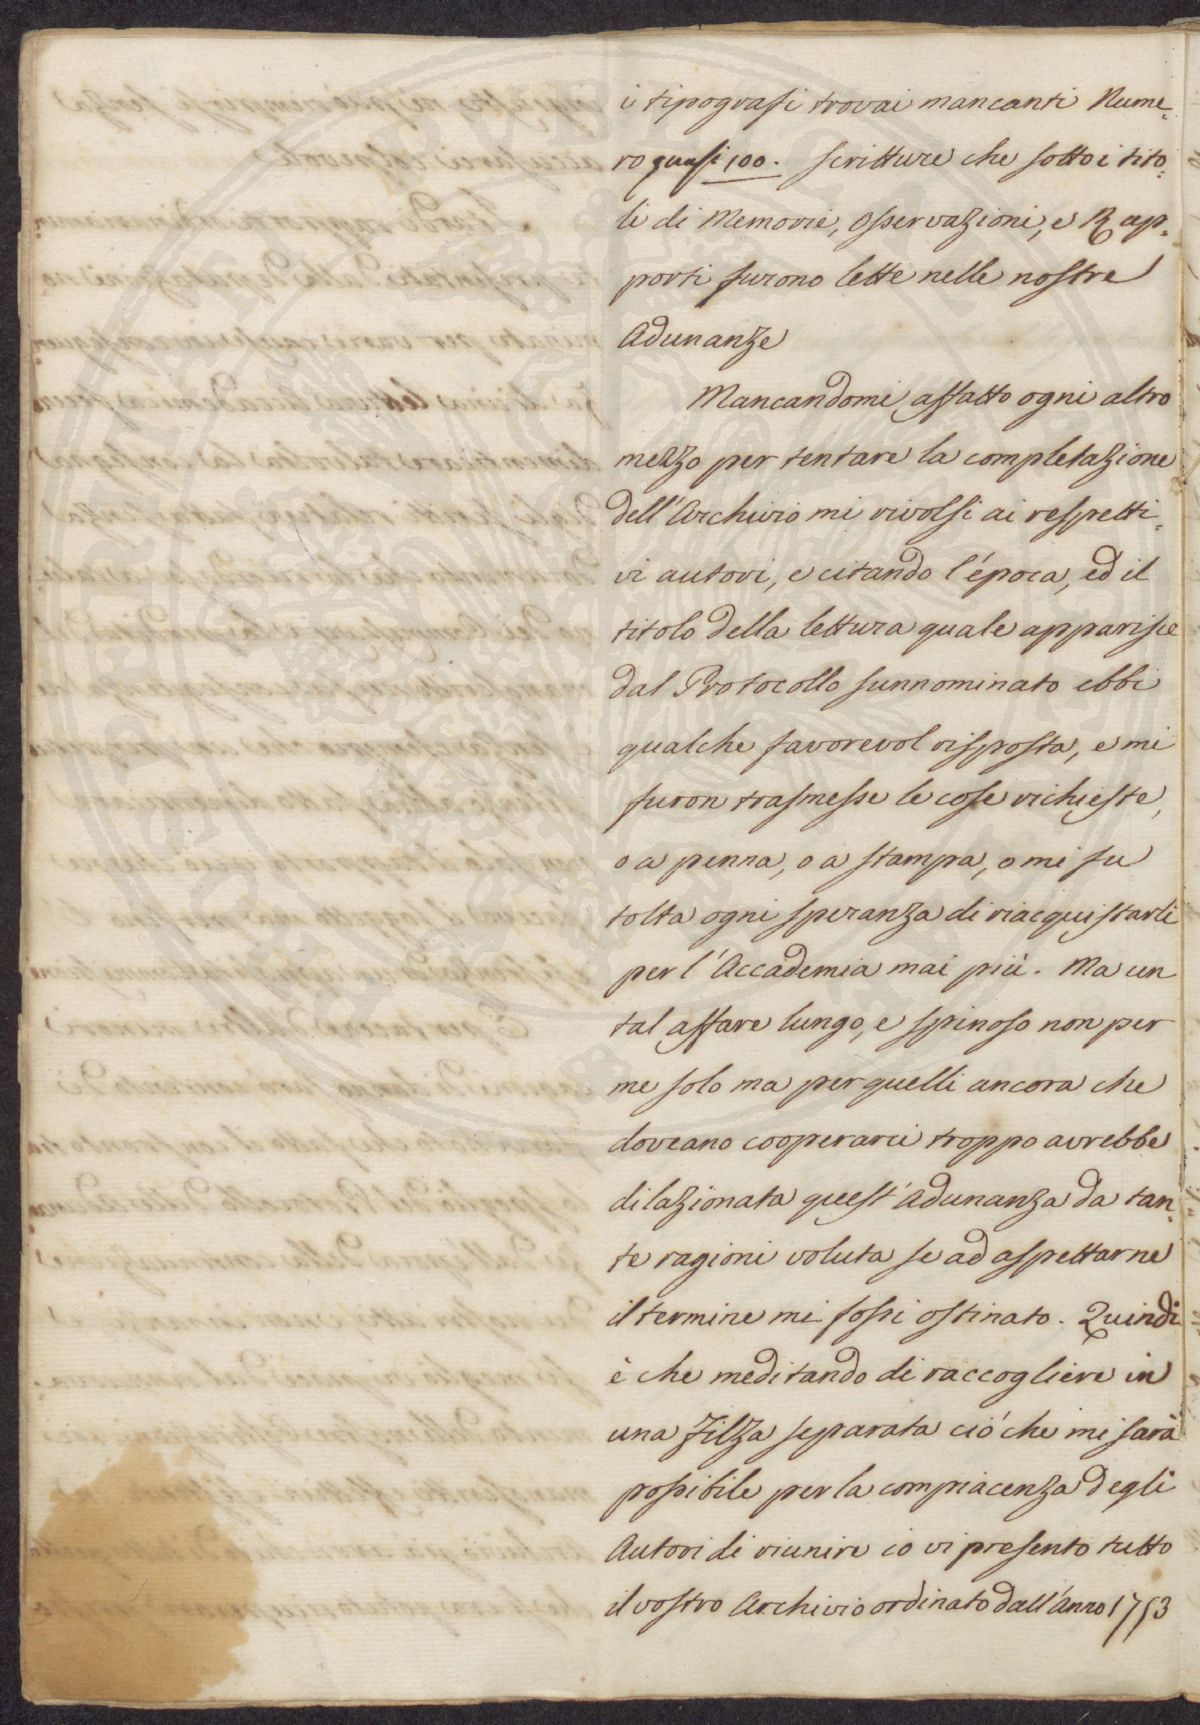 i tipografi trovai mancanti Nume=
ro quasi 100. scritture che sotto i tito=
li di Memorie, Osservazioni, e Rap=
porti furono lette nelle nostre
Adunanze
Mancandomi affatto ogni altro
mezzo per tentare la completazione
dell'Archivio mi rivolsi ai respetti=
vi autori, e citando l'época, ed il
titolo della lettura quale apparisce
dal Protocollo sunnominato ebbi
qualche favorevol risposta, e mi
furon trasmesse le cose richieste,
o a penna, o a stampa, o mi fu
tolta ogni speranza di riacquistarli
per l'Accademia mai più. Ma un
tal affare lungo, e spinoso non per
me solo ma per quelli ancora che
doveano cooperarci troppo avrebbe
dilazionata quest'Adunanza da tan=
te ragioni voluta se ad aspettarne
il termine mi fossi ostinato. Quindi
è che meditando di raccogliere in
una Filza separata ciò che mi sarà
possibile per la compiacenza degli
Autori di riunire io vi presento tutto
il vostro Archivio ordinato dall'Anno 1753